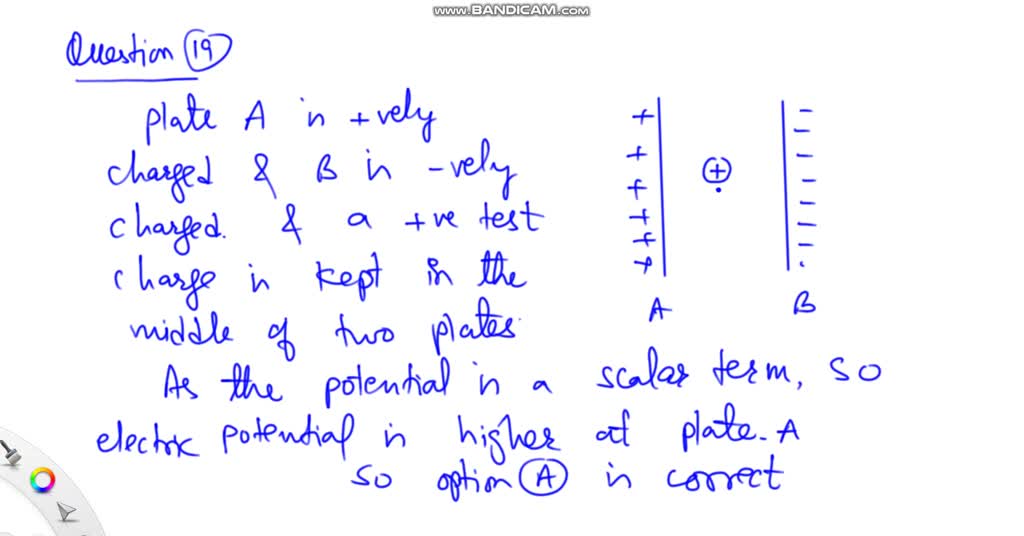 www.BANDICAM.com
Question 19
plate A is +vely
charged & B is -vely
charged. & a +ve test
charge is kept in the
middle of two plates.
+ + + + + +
+
- - - - - - -
A
B
As the potential is a scalar term, so
electric potential is higher at plate. A
so option A is correct